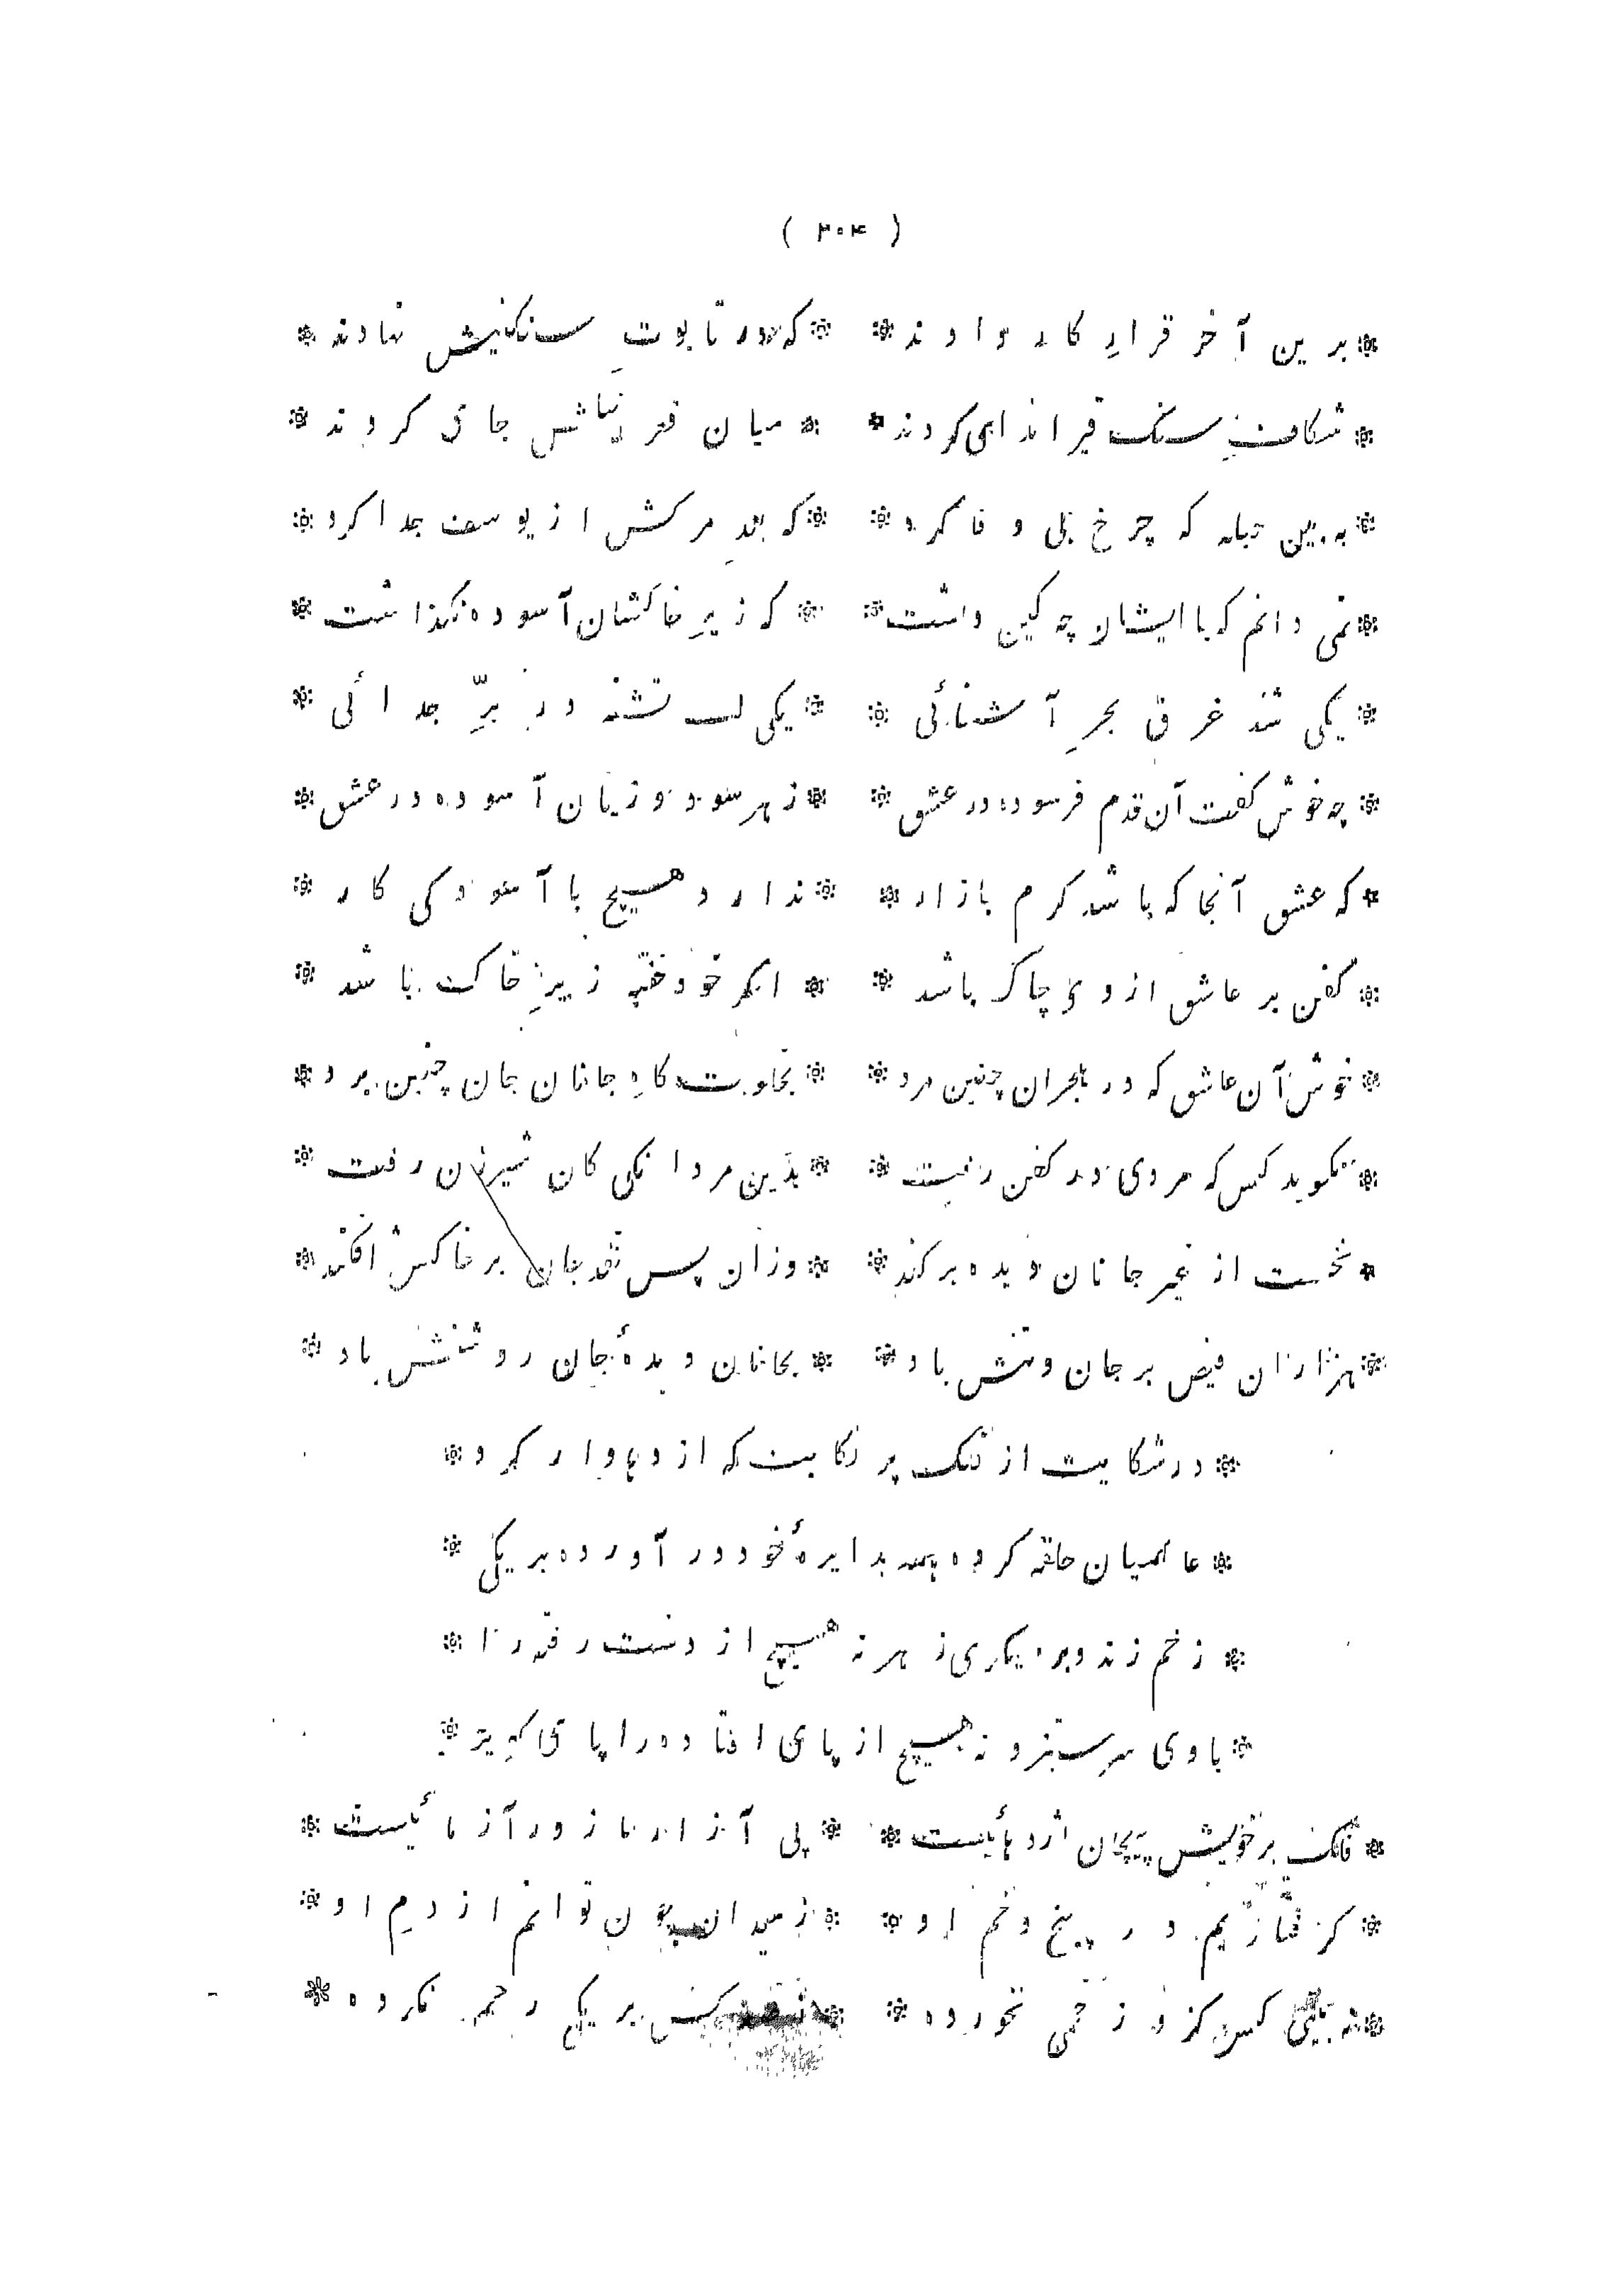 ( ٢٠۴ )
* برین آخر قرار کار دادند * * که در تابوتِ سنکنیش نهادند *
* شکافِ سنک قیر اندای کردند * * میان قعر نیلش جای کردند *
* به بین حیله که چرخ بی وفا کرد * * که بعدِ مرکش از یوسف جدا کرد *
* نمی دانم که با ایشان چه کین داشت * * که زیرِ خاکشان آسوده نکذاشت *
* یکی شد غرق بحرِ آشنائی * * یکی لب تشنه در برِّ جدائی *
* چه خوش کفت آن قدم فرسوده در عشق * * ز هر سود و زیان آسوده در عشق *
* که عشق آنجا که باشد کرم بازار * * ندارد هیچ با آسودکی کار *
* کفن بر عاشق از وی چاک باشد * * اکر خود خفته زیرِ خاک باشد *
* خوش آن عاشق که در هجران چنین مرد * * بخلوت کاهِ جانان جان چنین برد *
* نکوید کس که مردی در کفن رفت * * بدین مردانکی کان شیرزن رفت *
* نخست از غیر جانان دیده بر کند * * وزان پس نقد جان بر خاکش افکند *
* هزاران فیض بر جان و تنش باد * * بجانان دیدهٔ جان روشنش باد *
* در شکایت از فلک پر نکایت که اژدهاوار کرد *
* عالمیان حلقه کرده همه بدایرهٔ خود در آورده بر یکی *
* زخم زند و بر دیکری زهر نه هیچ از دست رفته را *
* با وی سرِ ستیز و نه هیچ از پای افتاده را پای کریز *
* فلک بر خویش پیچان اژدهائیست * * پی آزار ما زور آزمائیست *
* کرفتاریم در پیچ و خم او * * ز میدان چون توانم از دم او *
* نه بینی کس کز و زخمی نخورده * * کس بر یکی رحم نکرده *